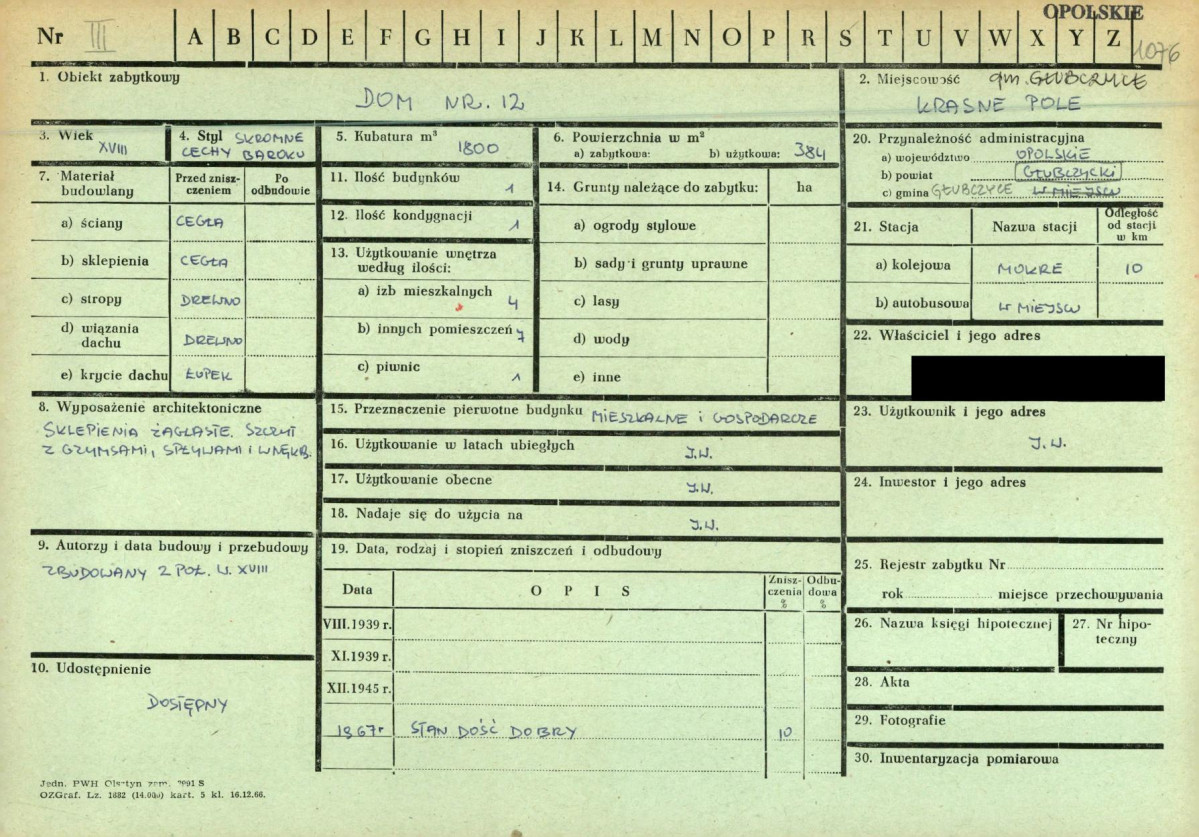 OPOLSKIE
Nr III A B C D E F G H I J K L M N O P R S T U V W X Y Z 1076
1. Obiekt zabytkowy
DOM NR. 12
2. Miejscowość gm. GŁUBCZYCE
KRASNE POLE
3. Wiek
XVIII
4. Styl SKROMNE
CECHY BAROKU
5. Kubatura m³
1800
6. Powierzchnia w m²
a) zabytkowa: b) użytkowa: 384
7. Materiał budowlany
Przed zniszczeniem
Po odbudowie
a) ściany CEGŁA
b) sklepienia CEGŁA
c) stropy DREWNO
d) wiązania dachu DREWNO
e) krycie dachu ŁUPEK
8. Wyposażenie architektoniczne
SKLEPIENIA ŻAGLASTE. SZCZYT
Z GZYMSAMI, SPŁYWAMI I WNĘKĄ.
9. Autorzy i data budowy i przebudowy
ZBUDOWANY 2 POŁ. W. XVIII
10. Udostępnienie
DOSTĘPNY
11. Ilość budynków 1
12. Ilość kondygnacji 1
13. Użytkowanie wnętrza
według ilości:
a) izb mieszkalnych 4
b) innych pomieszczeń 7
c) piwnic 1
14. Grunty należące do zabytku: ha
a) ogrody stylowe
b) sady i grunty uprawne
c) lasy
d) wody
e) inne
15. Przeznaczenie pierwotne budynku MIESZKALNE I GOSPODARCZE
16. Użytkowanie w latach ubiegłych J.W.
17. Użytkowanie obecne J.W.
18. Nadaje się do użycia na J.W.
19. Data, rodzaj i stopień zniszczeń i odbudowy
Data OPIS Zniszczenia % Odbudowa %
VIII.1939 r.
XI.1939 r.
XII.1945 r.
1967r STAN DOŚĆ DOBRY 10
20. Przynależność administracyjna
a) województwo OPOLSKIE
b) powiat GŁUBCZYCKI
c) gmina GŁUBCZYCE W MIEJSCU
21. Stacja Nazwa stacji Odległość od stacji w km
a) kolejowa MOKRE 10
b) autobusowa W MIEJSCU
22. Właściciel i jego adres
23. Użytkownik i jego adres
J.W.
24. Inwestor i jego adres
25. Rejestr zabytku Nr
rok miejsce przechowywania
26. Nazwa księgi hipotecznej
27. Nr hipoteczny
28. Akta
29. Fotografie
30. Inwentaryzacja pomiarowa
Jedn. PWH Olsztyn zam. 2991 S
OZGraf. Lz. 1682 (14.000) kart. 5 kl. 16.12.66.